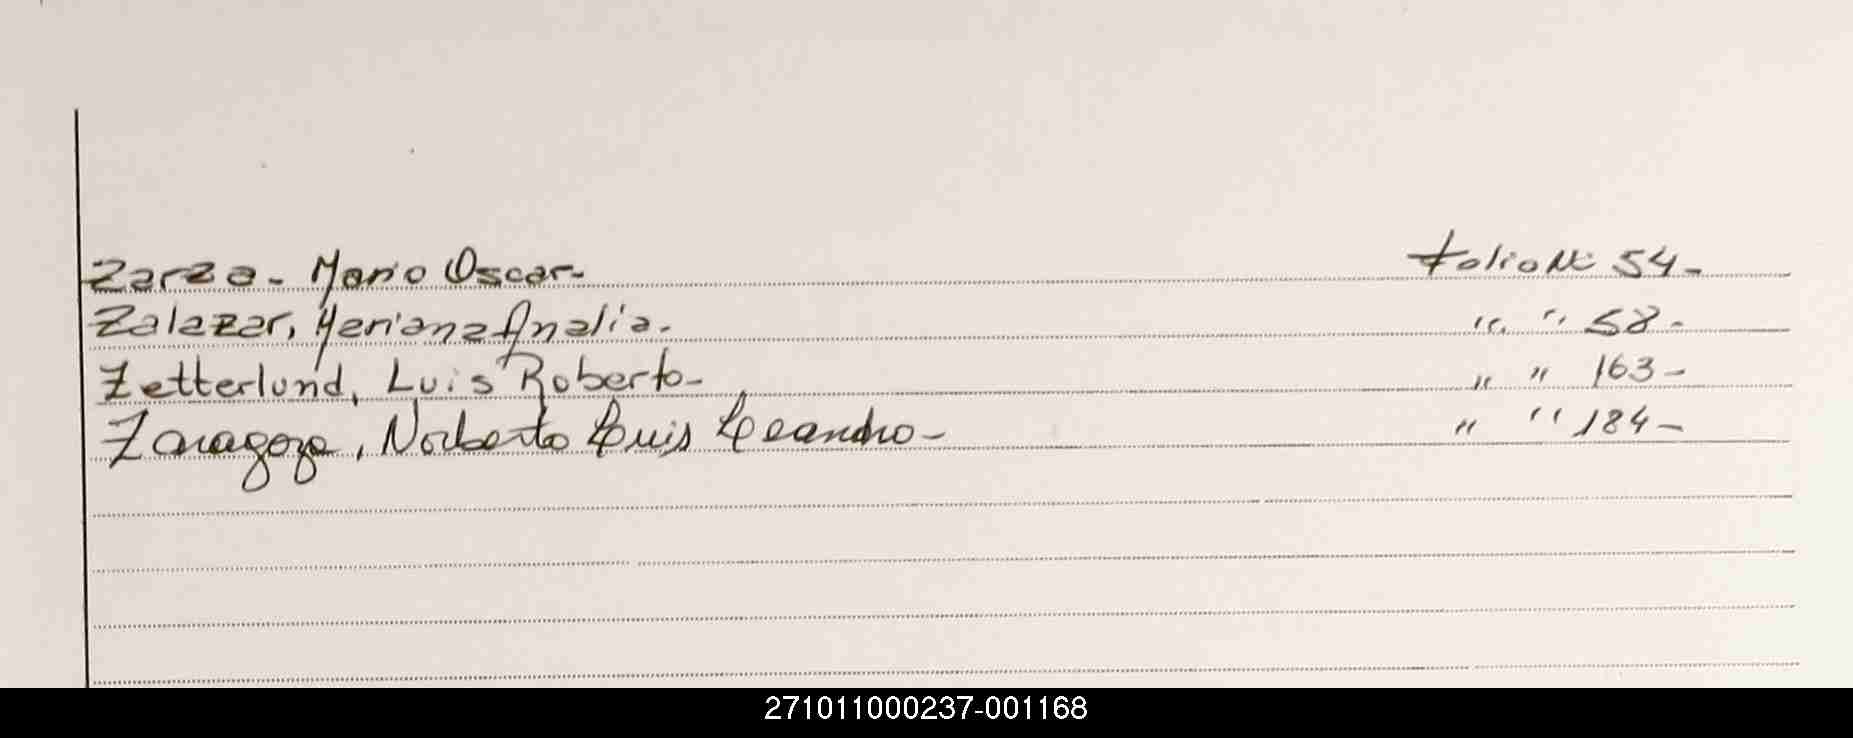 Zarza - Mario Oscar - Folio Nº 54 -
Zalazar, Mariana Analia. " " 58 -
Zetterlund, Luis Roberto - " " 163 -
Zaragoza, Norberto Luis Leandro - " " 184 -
271011000237-001168